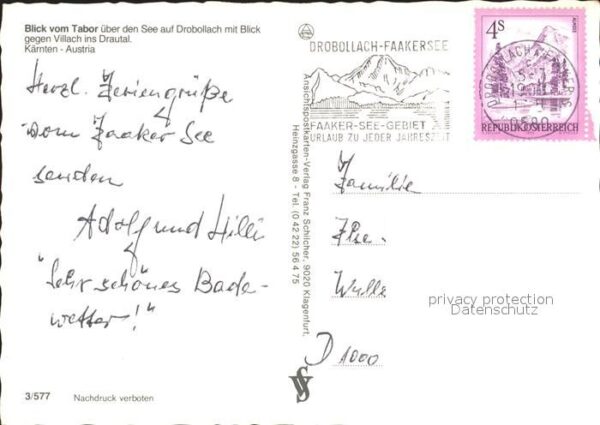 Blick vom Tabor über den See auf Drobollach mit Blick
gegen Villach ins Drautal.
Kärnten - Austria
Herzl. Feriengrüße
vom Faaker See
senden
Adolf und Hilli
"Sehr schönes Bade-
wetter!"
3/577 Nachdruck verboten
Ansichtspostkarten-Verlag Franz Schilcher, 9020 Klagenfurt,
Heinzgasse 8 - Tel. (0 42 22) 56 4 75
DROBOLLACH-FAAKERSEE
FAAKER-SEE-GEBIET
URLAUB ZU JEDER JAHRESZEIT
4S
REPUBLIK ÖSTERREICH
Familie
Ilse
Wulle
D 1000
privacy protection
Datenschutz